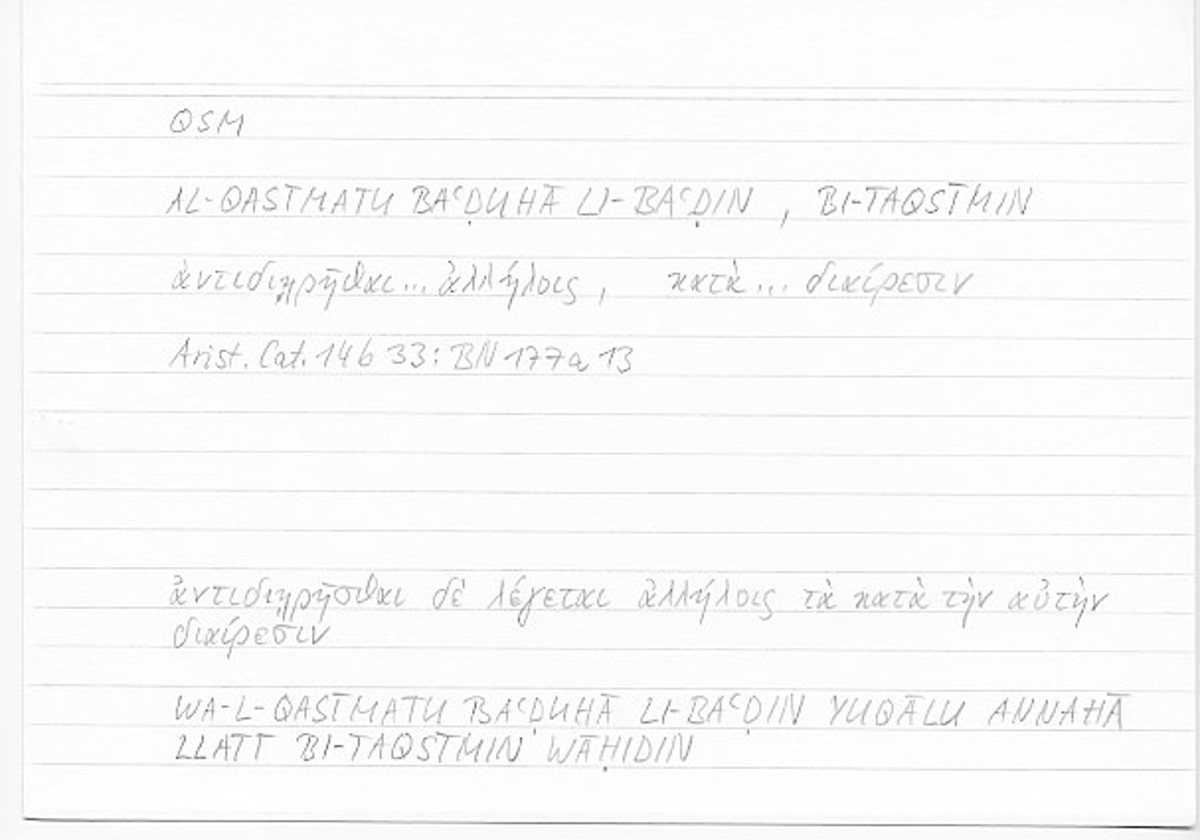 QSM
AL-QASĪMATU BAʿḌUHĀ LI-BAʿḌIN , BI-TAQSĪMIN
ἀντιδιῃρῆσθαι... ἀλλήλοις , κατὰ... διαίρεσιν
Arist. Cat. 14b 33: BN 177a 13
ἀντιδιῃρῆσθαι δὲ λέγεται ἀλλήλοις τὰ κατὰ τὴν αὐτὴν
διαίρεσιν
WA-L-QASĪMATU BAʿḌUHĀ LI-BAʿḌIN YUQĀLU ANNAHĀ
LLATĪ BI-TAQSĪMIN WĀḤIDIN